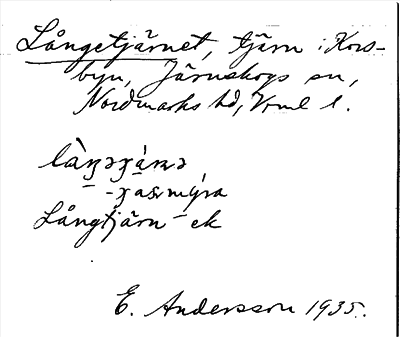 Långetjärnet, tjärn i Kors-
byn, Järnskogs sn,
Nordmarks hd, Vrml l.
Långtjärn - ek
E. Andersson 1935.